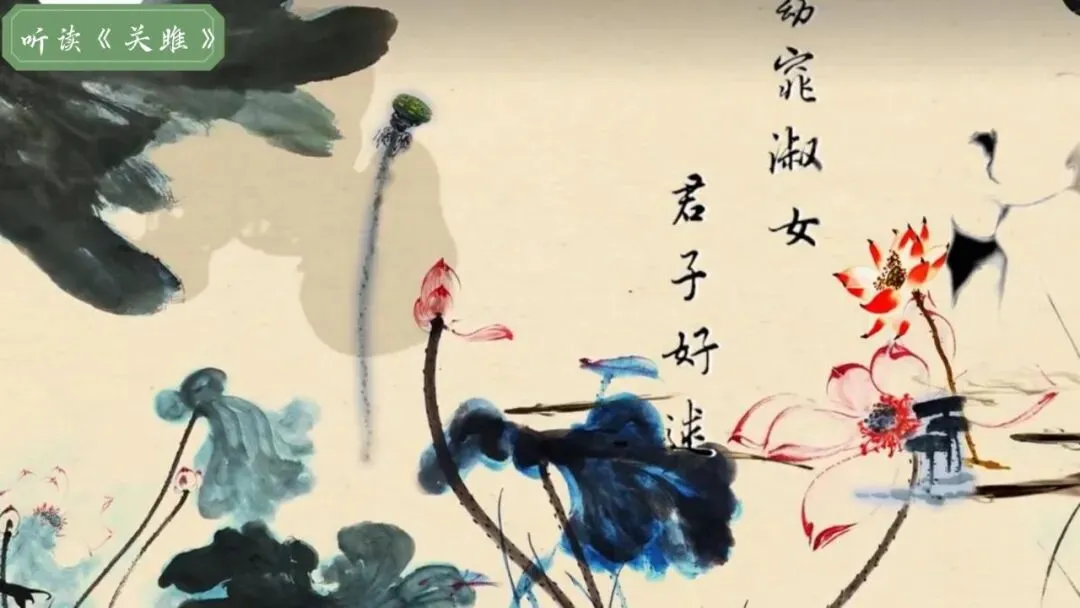 听读《关雎》
窈窕淑女
君子好逑